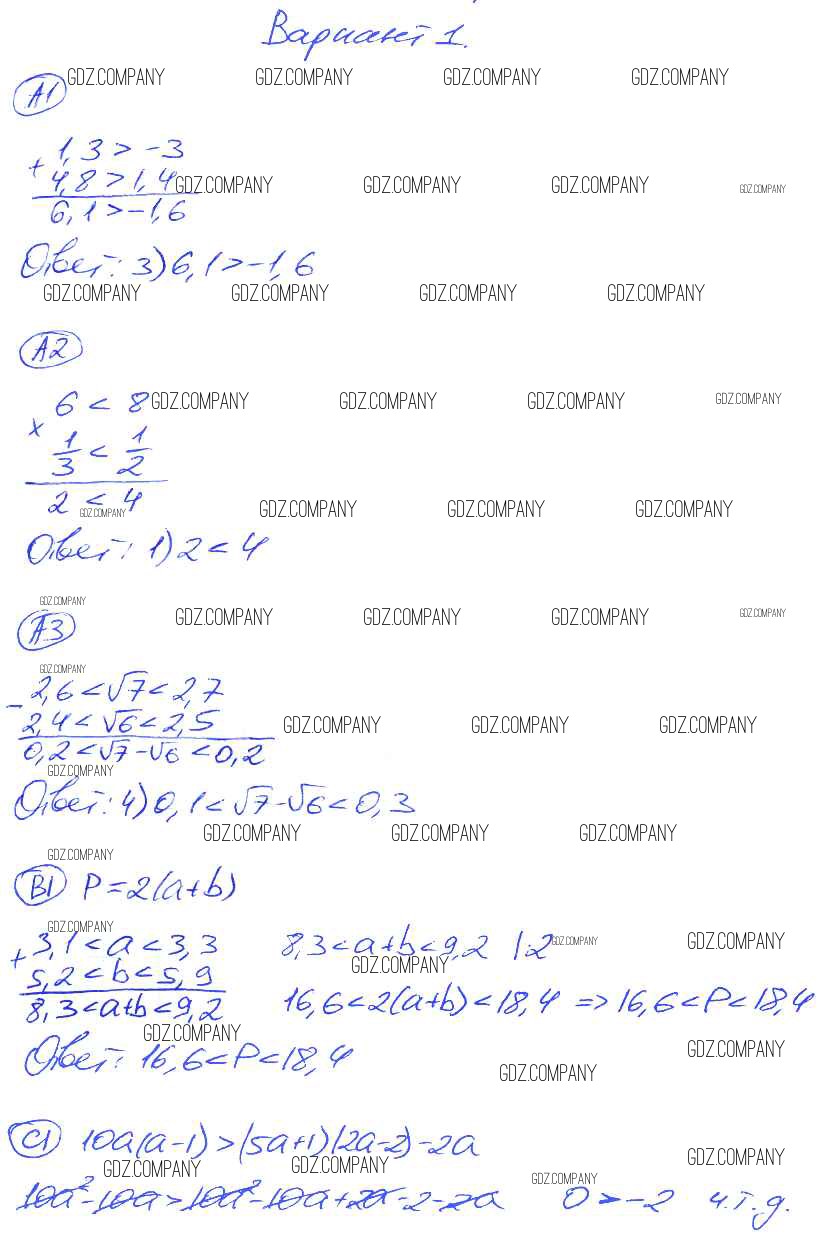 Вариант 1.
GDZ.COMPANY GDZ.COMPANY GDZ.COMPANY GDZ.COMPANY
А1
1,3 > -3
+ 4,8 > 1,4 GDZ.COMPANY GDZ.COMPANY GDZ.COMPANY GDZ.COMPANY
6,1 > -1,6
Ответ: 3) 6,1 > -1,6
GDZ.COMPANY GDZ.COMPANY GDZ.COMPANY GDZ.COMPANY
А2
6 < 8 GDZ.COMPANY GDZ.COMPANY GDZ.COMPANY GDZ.COMPANY
× 1/3 < 1/2
2 < 4
GDZ.COMPANY GDZ.COMPANY GDZ.COMPANY GDZ.COMPANY
Ответ: 1) 2 < 4
GDZ.COMPANY
А3 GDZ.COMPANY GDZ.COMPANY GDZ.COMPANY GDZ.COMPANY
GDZ.COMPANY
- 2,6 < √7 < 2,7
2,4 < √6 < 2,5 GDZ.COMPANY GDZ.COMPANY GDZ.COMPANY
0,2 < √7 - √6 < 0,2
GDZ.COMPANY
Ответ: 4) 0,1 < √7 - √6 < 0,3
GDZ.COMPANY GDZ.COMPANY GDZ.COMPANY
GDZ.COMPANY
В1 P = 2(a+b)
GDZ.COMPANY
+ 3,1 < a < 3,3 8,3 < a+b < 9,2 |·2 GDZ.COMPANY GDZ.COMPANY
GDZ.COMPANY
5,2 < b < 5,9
8,3 < a+b < 9,2 16,6 < 2(a+b) < 18,4 => 16,6 < P < 18,4
GDZ.COMPANY
Ответ: 16,6 < P < 18,4 GDZ.COMPANY
GDZ.COMPANY
С1 10a(a-1) > (5a+1)(2a-2) - 2a
GDZ.COMPANY GDZ.COMPANY GDZ.COMPANY
GDZ.COMPANY
10a² - 10a > 10a² - 10a + 2a - 2 - 2a 0 > -2 ч.т.д.